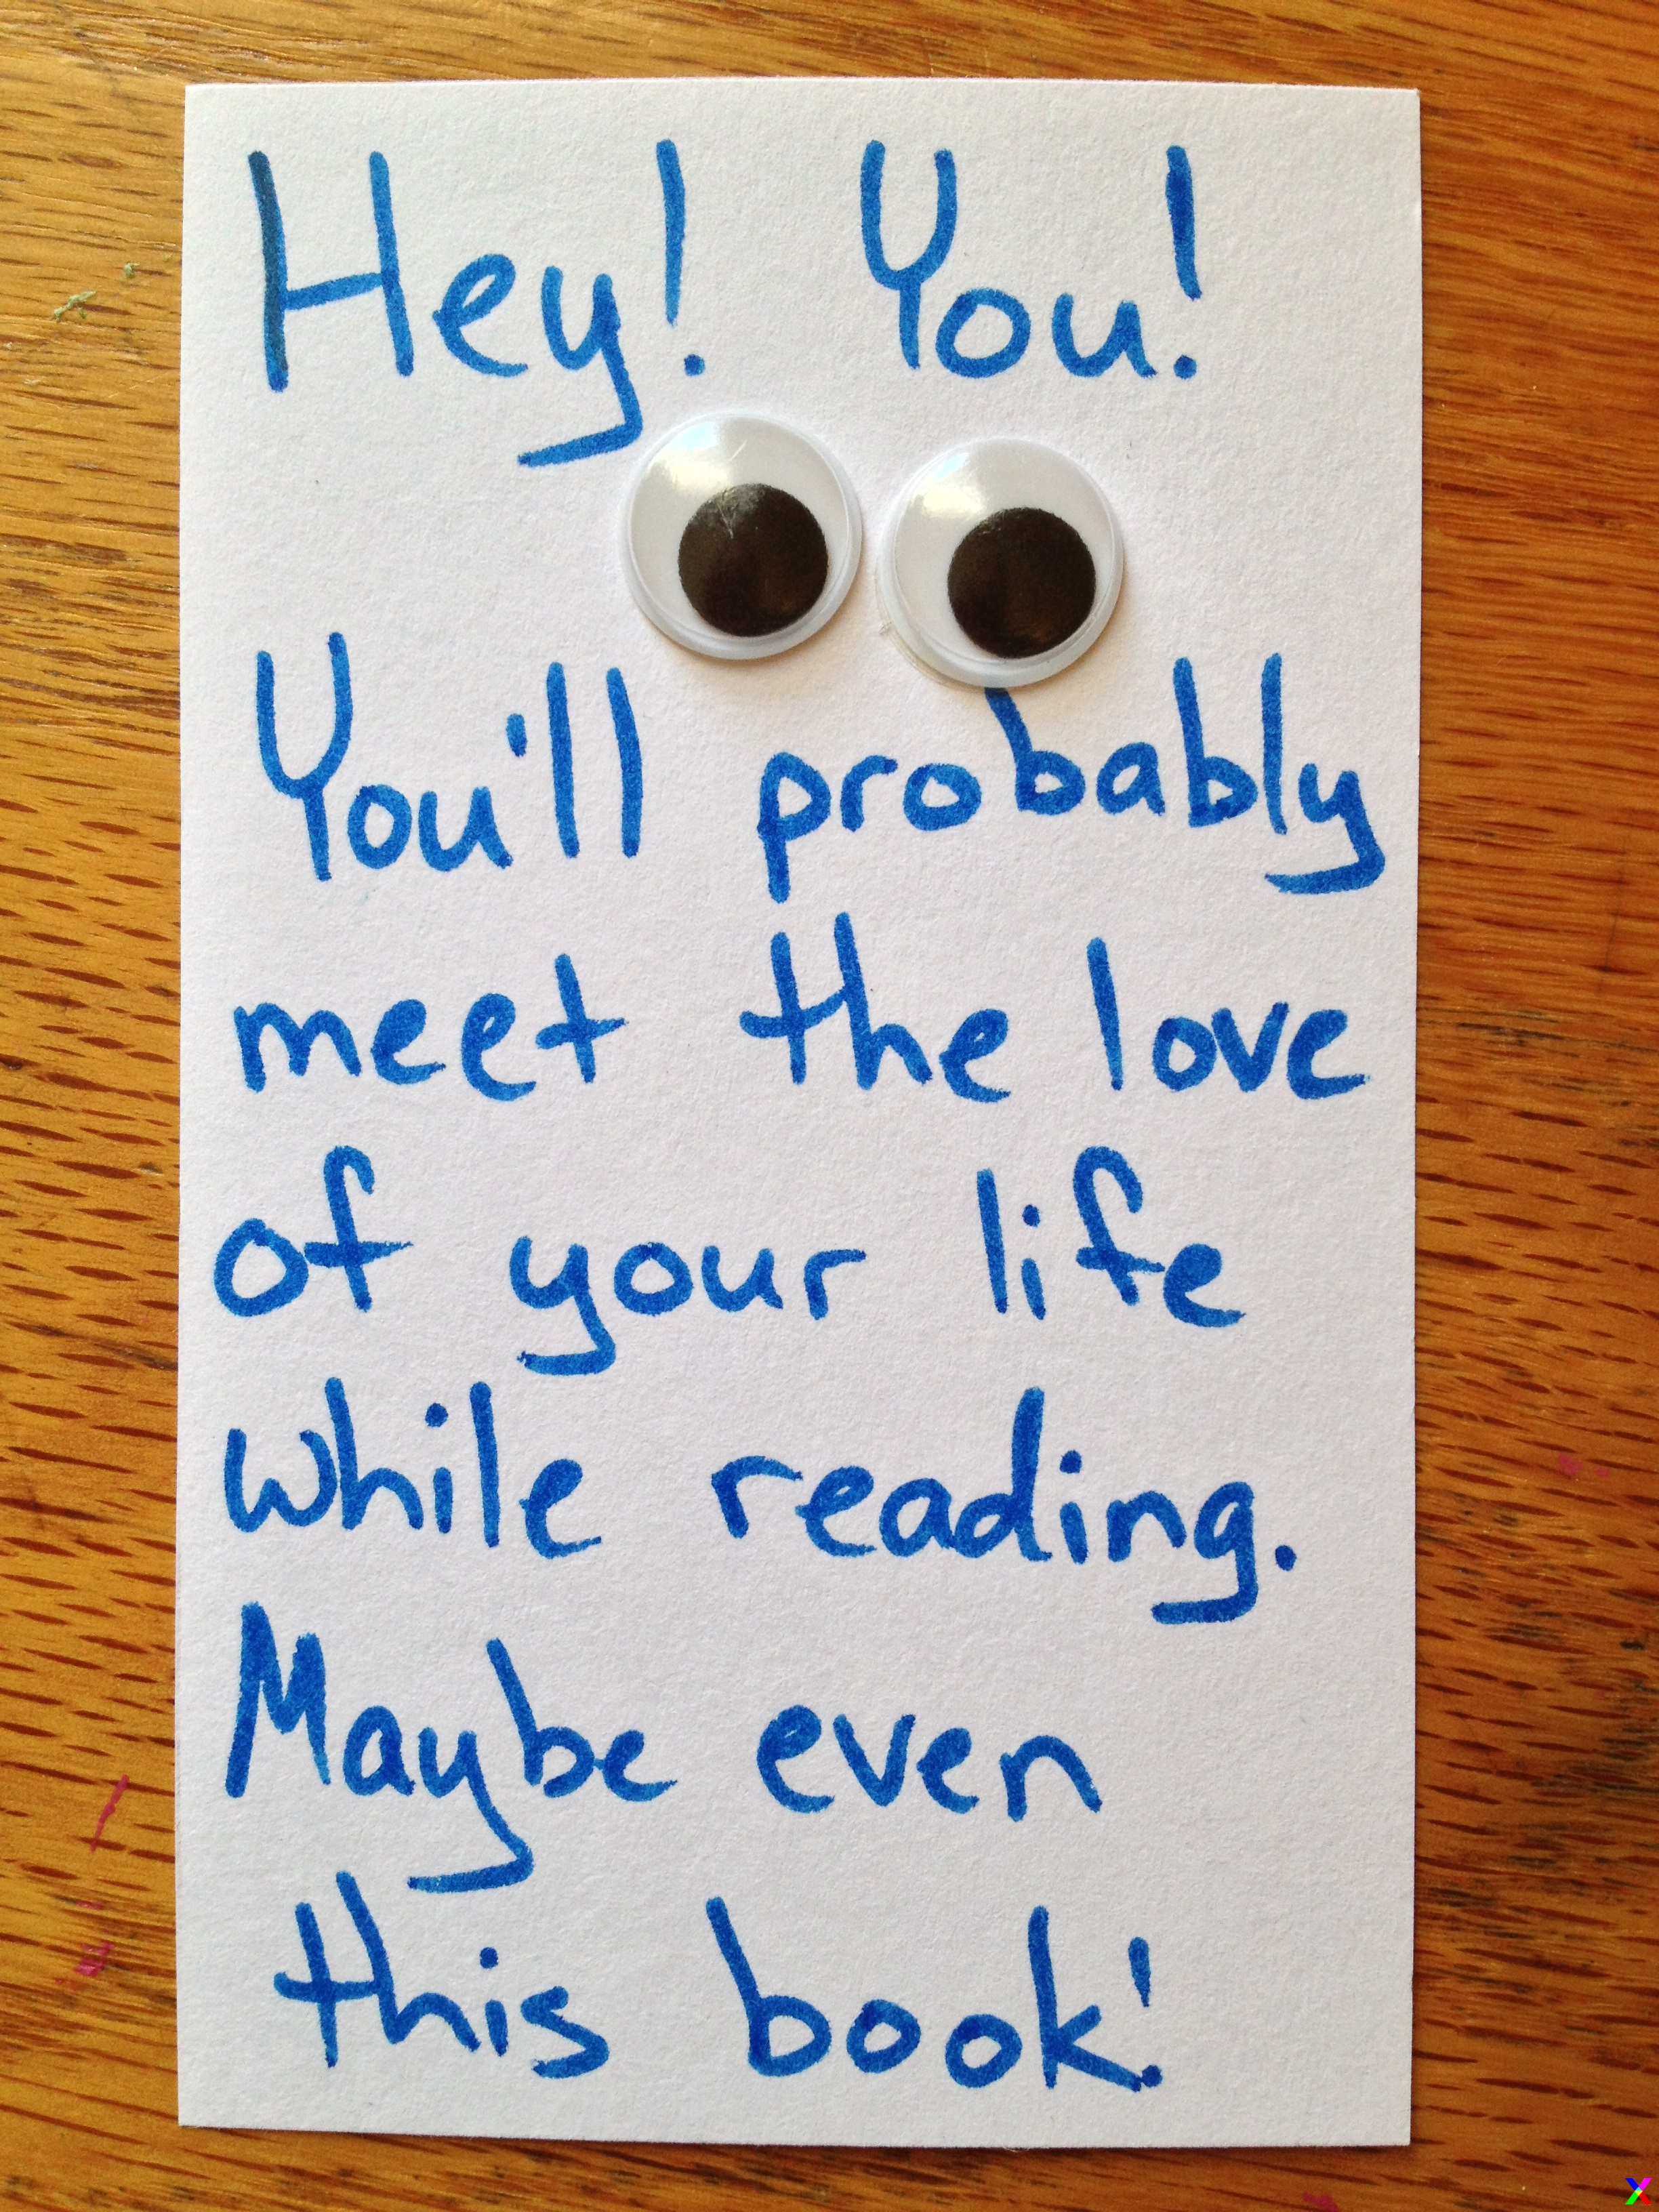 Hey! You!
You'll probably
meet the love
of your life
while reading.
Maybe even
this book!